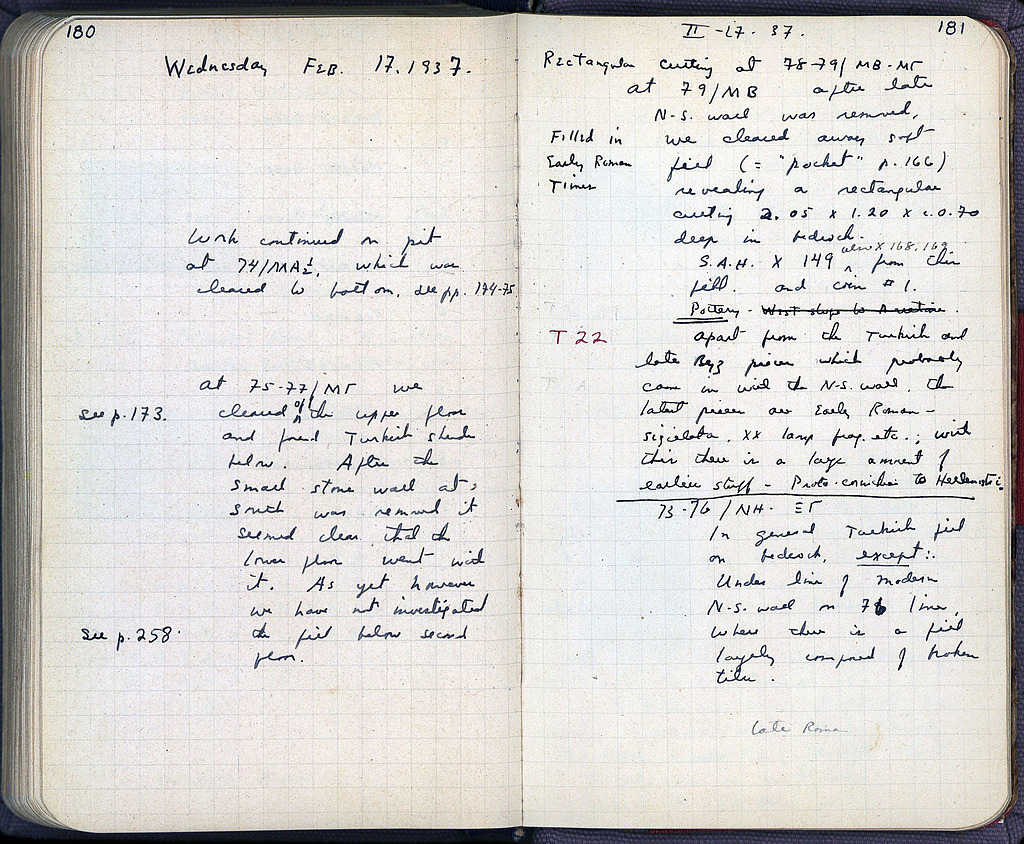 180
Wednesday Feb. 17. 1937.
Work continued on pit
at 74/MA½, which was
cleared to bottom, see pp. 174-75
at 75-77/ΜΓ we
See p. 173.
cleared off the upper floor
and found Turkish sherds
below. After the
small stone wall at
south was removed it
seemed clear that the
lower floor went with
it. As yet however
we have not investigated
See p. 258.
the fill below second
floor.
181
II-17.37.
Rectangular cutting at 78-79/MB-ΜΓ
at 79/MB after late
N-S. wall was removed,
Filled in
we cleared away soft
Early Roman
fill (= "pocket" p. 166)
Times
revealing a rectangular
cutting 2.05 x 1.20 x c.0.70
deep in bedrock.
also X 168, 169
S.A.H. X 149 ^ from this
fill. and coin #1.
Pottery - West slope to Arretine.
T 22
apart from the Turkish and
late Byz pieces which probably
came in with the N-S. wall, the
latest pieces are Early Roman -
sigillata, XX lamp frag. etc.; with
this there is a large amount of
earlier stuff - Proto-corinthian to Hellenistic.
73-76/NH-ΞΓ
In general Turkish fill
on bedrock, except:
Under line of modern
N-S. wall on 76 line,
where there is a fill
largely composed of broken
tiles.
Late Roman